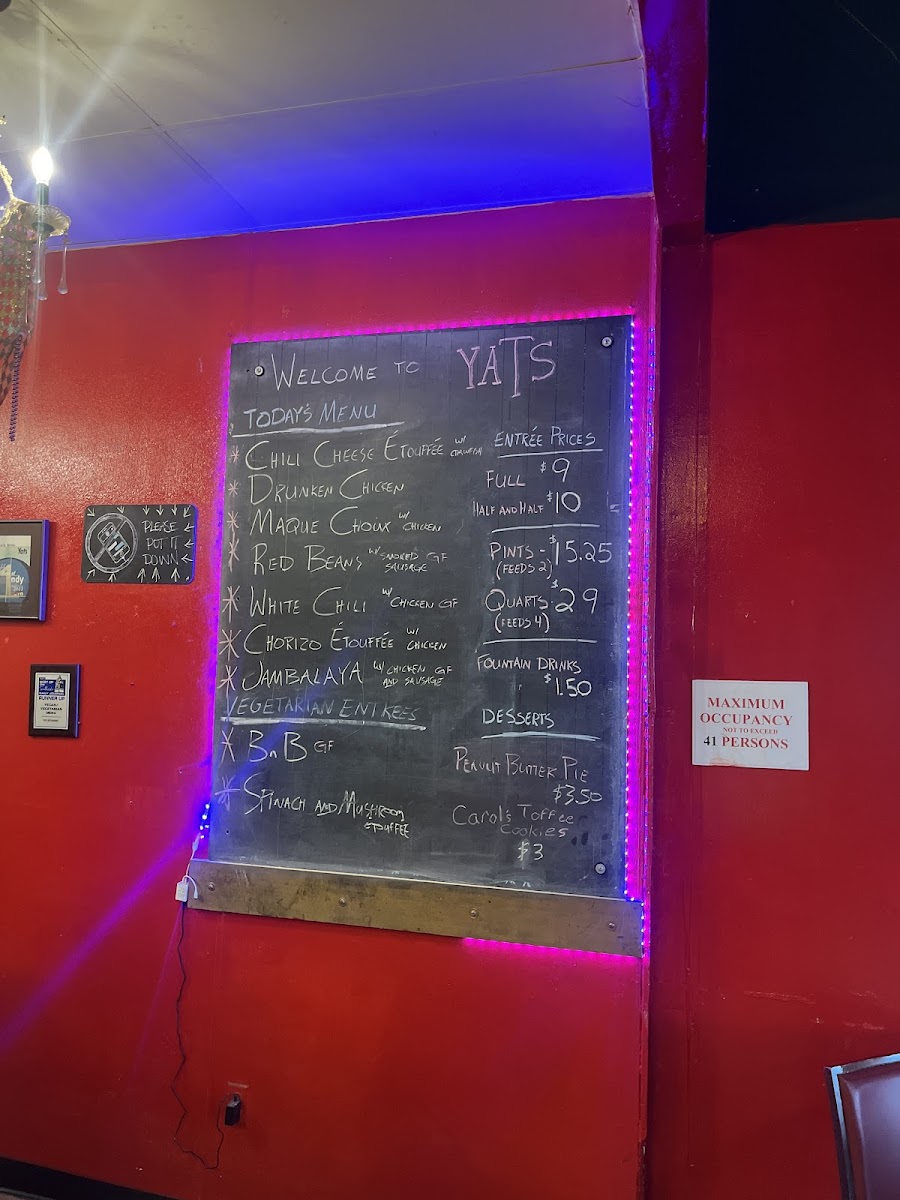 WELCOME TO YATS
TODAY'S MENU
* CHILI CHEESE ÉTOUFFÉE w/
* DRUNKEN CHICKEN
* MAQUE CHOUX w/ CHICKEN
* RED BEANS w/ SMOKED GF
SAUSAGE
* WHITE CHILI w/ CHICKEN GF
* CHORIZO ÉTOUFFÉE w/ CHICKEN
* JAMBALAYA w/ CHICKEN GF
AND SAUSAGE
VEGETARIAN ENTREES
* BnB GF
* SPINACH AND MUSHROOM
ETOUFFEE
ENTRÉE PRICES
FULL $9
HALF AND HALF $10
PINTS - $15.25
(FEEDS 2)
QUARTS - $29
(FEEDS 4)
FOUNTAIN DRINKS
$1.50
DESSERTS
PEANUT BUTTER PIE
$3.50
Carol's Toffee
Cookies
$3
PLEASE
PUT IT
DOWN
Yats
RUNNER UP
MAXIMUM
OCCUPANCY
NOT TO EXCEED
41 PERSONS